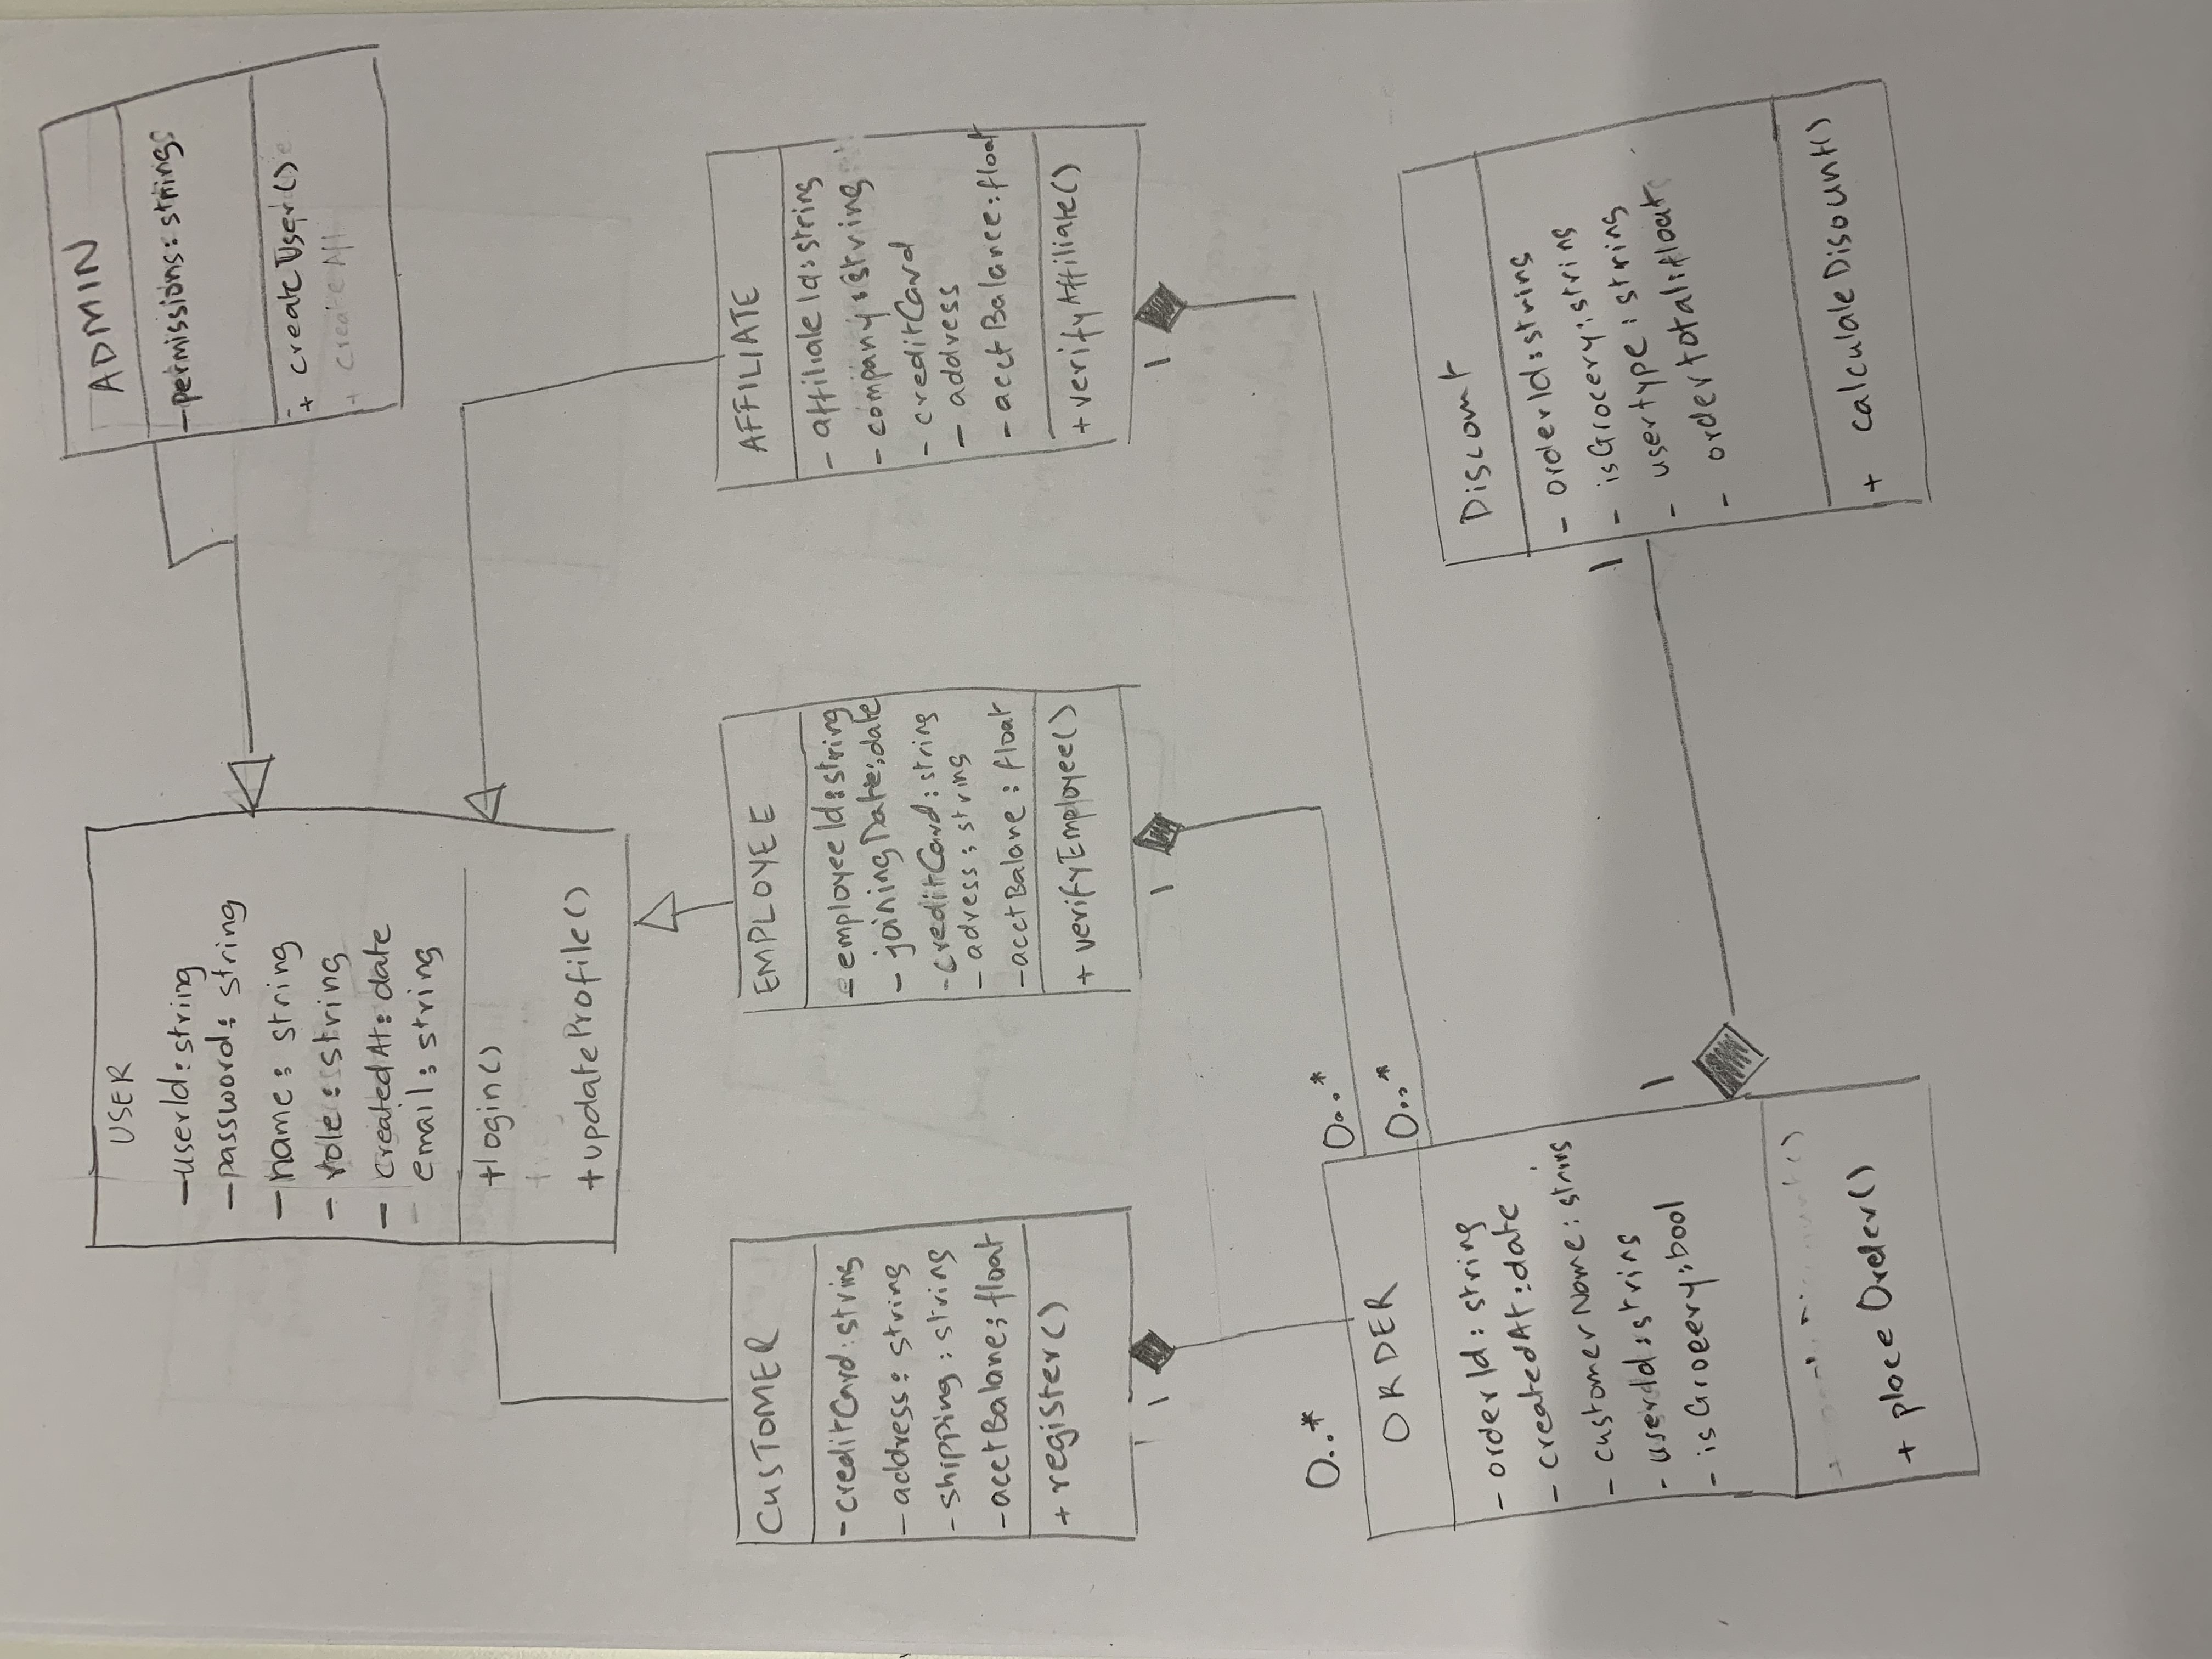 USER
-userId: string
-password: string
-name: string
- role: string
- createdAt: date
- email: string
+login()
+updateProfile()
ADMIN
-permissions: string
+ createUser()
+ create Aff
CUSTOMER
-creditCard: string
- address: string
- shipping: string
-acctBalane: float
+ register()
EMPLOYEE
- employeeId: string
- joiningDate: date
-creditCard: string
- adress: string
-acctBalane: float
+ verifyEmployee()
AFFILIATE
- affiliateId: string
- company: string
- creditCard
- address
- acctBalance: float
+ verifyAffiliate()
1
1
1
0..*
0..*
0..*
ORDER
- orderId: string
- createdAt: date
- customerName: string
- userId: string
- isGrocery: bool
+ placeOrder()
1
1
Discount
- orderId: string
- isGrocery: string
- usertype: string
- ordertotal: float
+ calculateDisount()